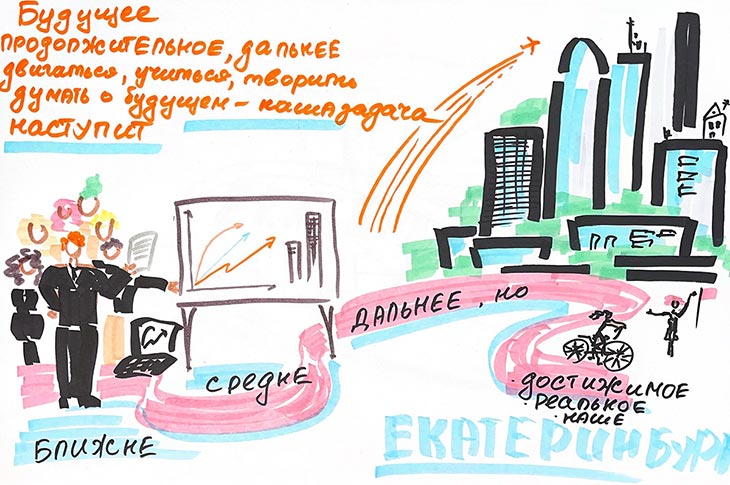 Будущее
продолжительное, дальнее
двигаться, учиться, творить
думать о будущем – наша задача
наступит
ДАЛЬНЕЕ, НО
СРЕДНЕ
ДОСТИЖИМОЕ
РЕАЛЬНОЕ
НАШЕ
БЛИЖНЕ
ЕКАТЕРИНБУРГ